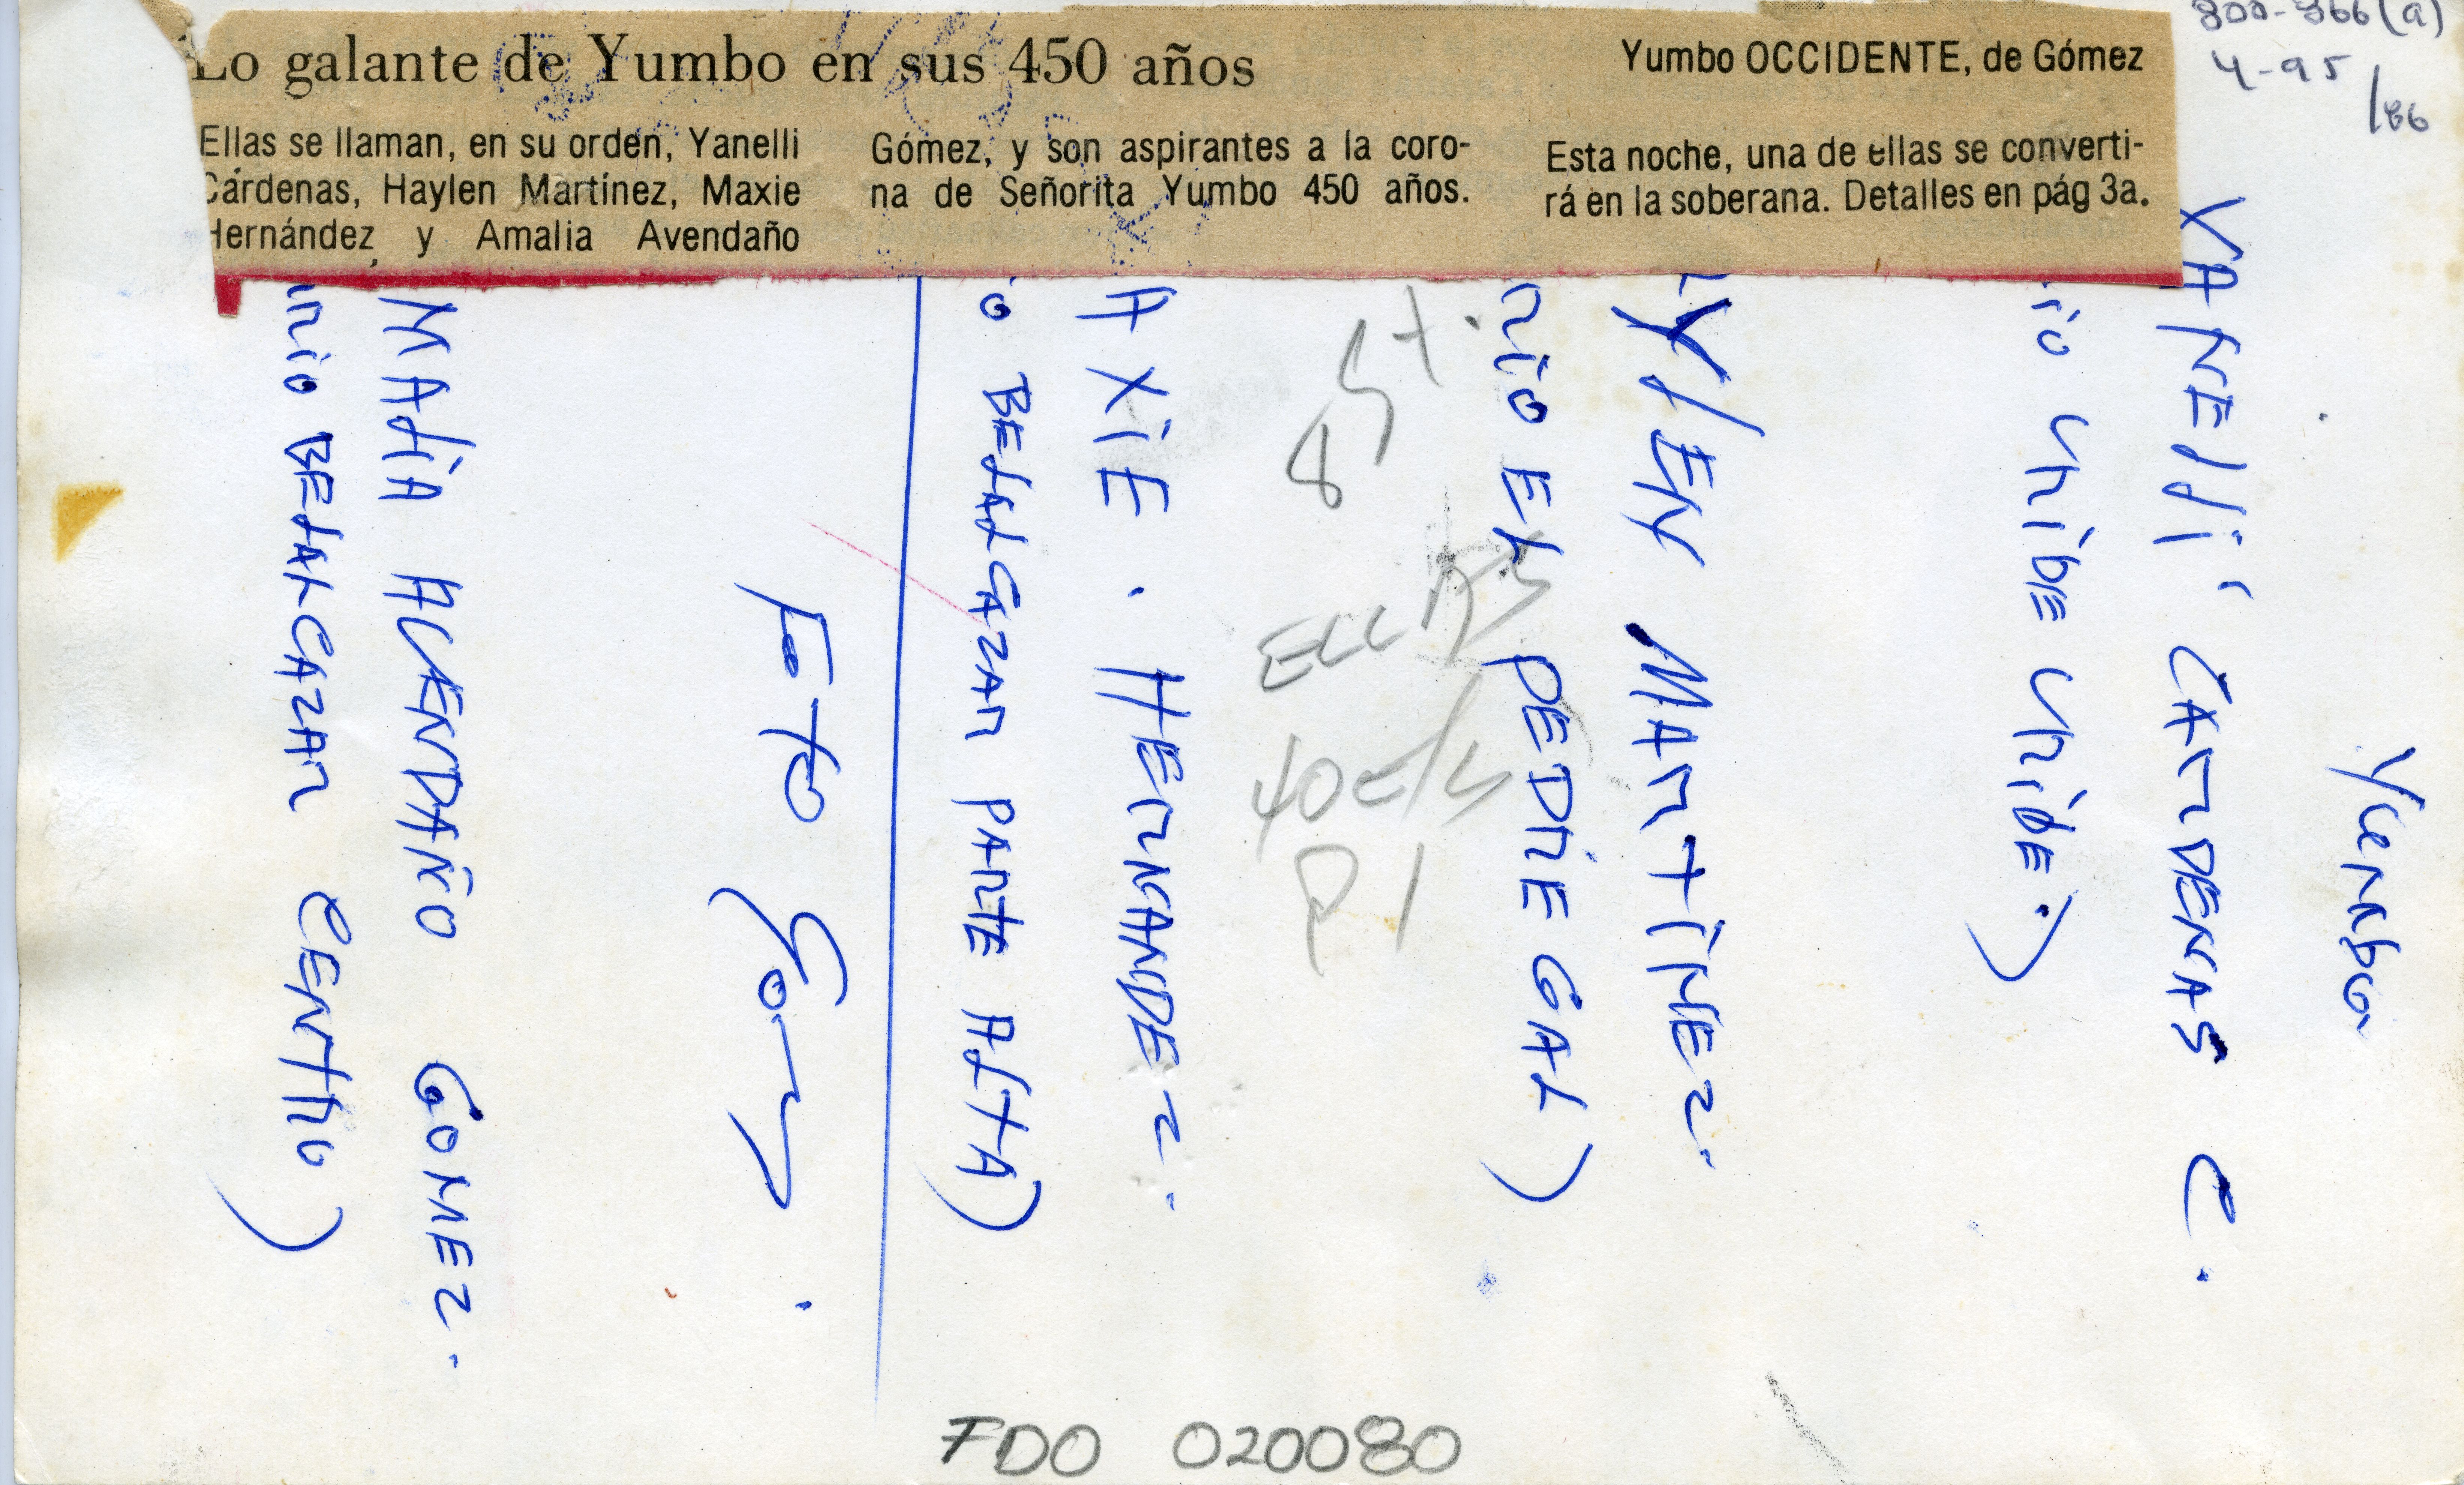 Lo galante de Yumbo en sus 450 años
Yumbo OCCIDENTE, de Gómez
Ellas se llaman, en su orden, Yanelli
Cárdenas, Haylen Martínez, Maxie
Hernández y Amalia Avendaño
Gómez, y son aspirantes a la coro-
na de Señorita Yumbo 450 años.
Esta noche, una de ellas se converti-
rá en la soberana. Detalles en pág 3a.
4-95
/86
Yumbo
YANElli CARDENAS C.
io Uribe Uribe)
MARTiNEZ.
rio EL PEDREGAL)
AXiE. HERNANDEZ.
o BELALCAZAR PARTE ALTA)
Foto
MALiA AVENDAÑO GOMEZ.
rio BELALCAZAR CENTRO)
40
P1
FDO 020080